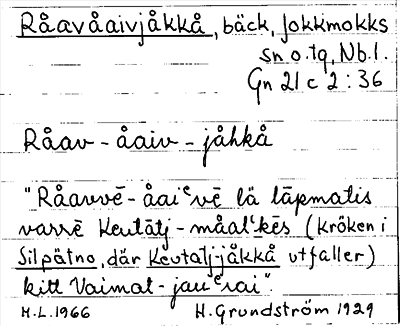 Råavåaivjåkkå, bäck, Jokkmokks
sn o. tg, Nb.l.
Gn 21 c 2:36
Råav - åaiv - jåhkå
"Råavvē - åaiᵉvē lä läpmatis
varrē Keutātj - måalᵗkēs (kröken i
Silpätno, där Keutatj-jåkkå utfaller)
kitt Vaimat - jauᵉrai".
H.L. 1966 H. Grundström 1929